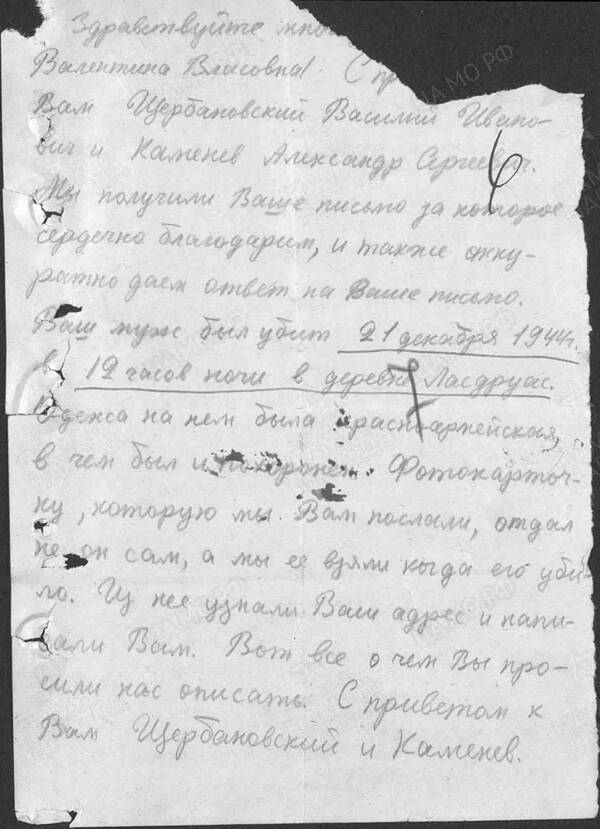 Здравствуйте
Валентина Власовна! С
Вам Щербановский Василий Ивано-
вич и Каменев Александр Сергеевич.
Мы получили Ваше письмо за которое
сердечно благодарим, и также акку-
ратно даем ответ на Ваше письмо.
Ваш муж был убит 21 декабря 1944г.
в 12 часов ночи в деревне Ласдруас.
Одежда на нем была красноармейская,
в чем был и похоронен. Фотокарточ-
ку, которую мы Вам послали, отдал
не он сам, а мы ее взяли когда его уби-
ло. Из нее узнали Ваш адрес и напи-
сали Вам. Вот все о чем Вы про-
сили нас описать. С приветом к
Вам Щербановский и Каменев.